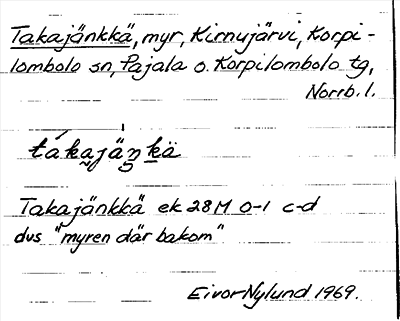 Takajänkkä, myr, Kirnujärvi, Korpi-
lombolo sn, Pajala o. Korpilombolo tg,
Norrb. l.
tákajäŋkä
Takajänkkä ek 28M 0-1 c-d
dvs "myren där bakom"
Eivor Nylund 1969.